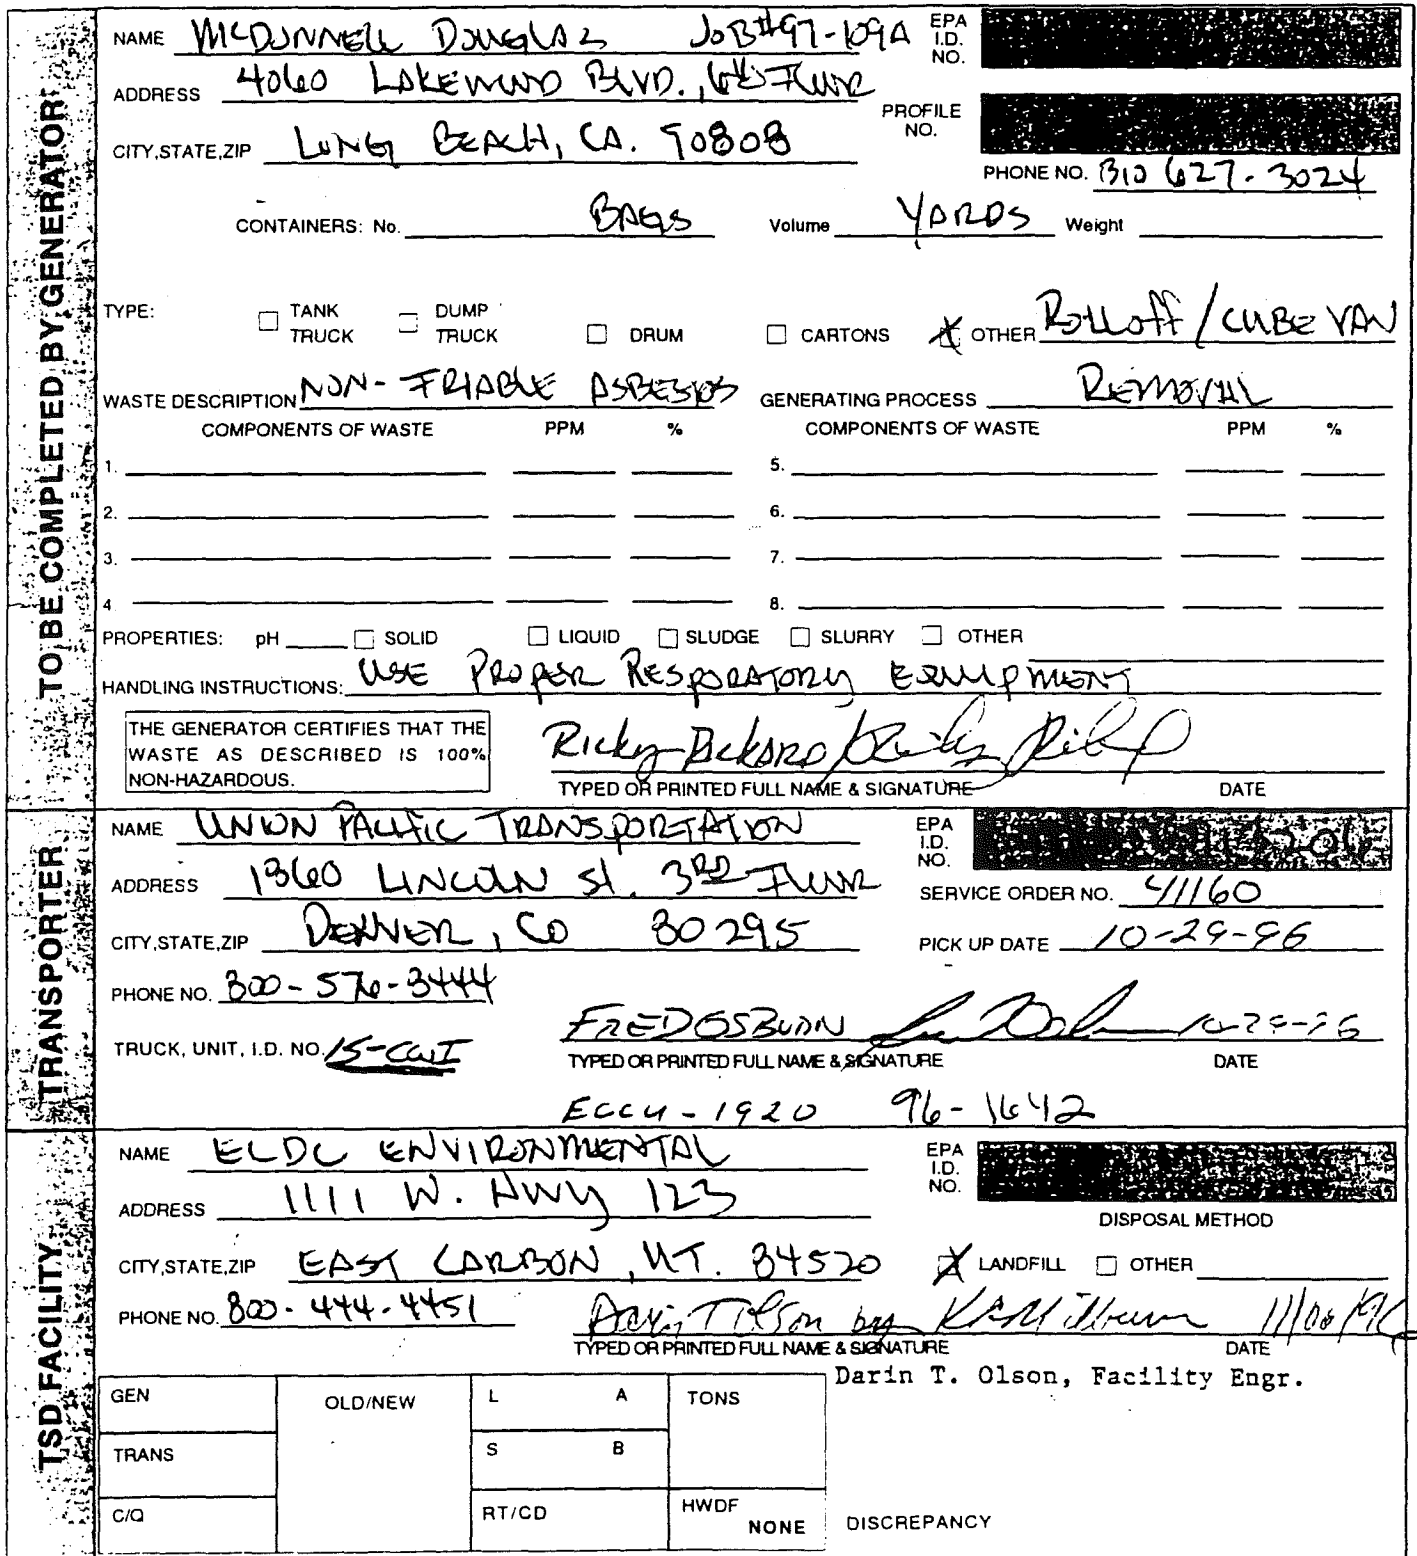 TO BE COMPLETED BY GENERATOR
NAME McDONNELL DOUGLAS JOB#97-109A EPA I.D. NO.
ADDRESS 4060 LAKEWOOD BLVD., 6th FLOOR
PROFILE NO.
CITY,STATE,ZIP LONG BEACH, CA. 90808
PHONE NO. 310 627-3024
CONTAINERS: No. BAGS Volume YARDS Weight
TYPE: TANK TRUCK DUMP TRUCK DRUM CARTONS OTHER Rolloff/CUBE VAN
WASTE DESCRIPTION NON-FRIABLE ASBESTOS GENERATING PROCESS REMOVAL
COMPONENTS OF WASTE PPM % COMPONENTS OF WASTE PPM %
1. 5.
2. 6.
3. 7.
4 8.
PROPERTIES: pH SOLID LIQUID SLUDGE SLURRY OTHER
HANDLING INSTRUCTIONS: USE PROPER RESPORATORY EQUIPMENT
THE GENERATOR CERTIFIES THAT THE
WASTE AS DESCRIBED IS 100%
NON-HAZARDOUS.
Ricky
TYPED OR PRINTED FULL NAME & SIGNATURE DATE
TRANSPORTER
NAME UNION PACIFIC TRANSPORTATION EPA I.D. NO.
ADDRESS 1860 LINCOLN St. 3RD FLOOR
SERVICE ORDER NO. 41160
CITY,STATE,ZIP DENVER, CO 80295 PICK UP DATE 10-29-96
PHONE NO. 800-576-3444
FRED OSBURN 10-29-96
TRUCK, UNIT, I.D. NO. 15-CWI TYPED OR PRINTED FULL NAME & SIGNATURE DATE
ECCU-1920 96-1642
TSD FACILITY
NAME ECDC ENVIRONMENTAL EPA I.D. NO.
ADDRESS 1111 W. HWY 123
DISPOSAL METHOD
CITY,STATE,ZIP EAST CARBON, UT. 84520 LANDFILL OTHER
PHONE NO. 800-444-4451 Darin T Olson by 11/06/96
TYPED OR PRINTED FULL NAME & SIGNATURE DATE
Darin T. Olson, Facility Engr.
GEN OLD/NEW L A TONS
TRANS S B
C/Q RT/CD HWDF NONE DISCREPANCY